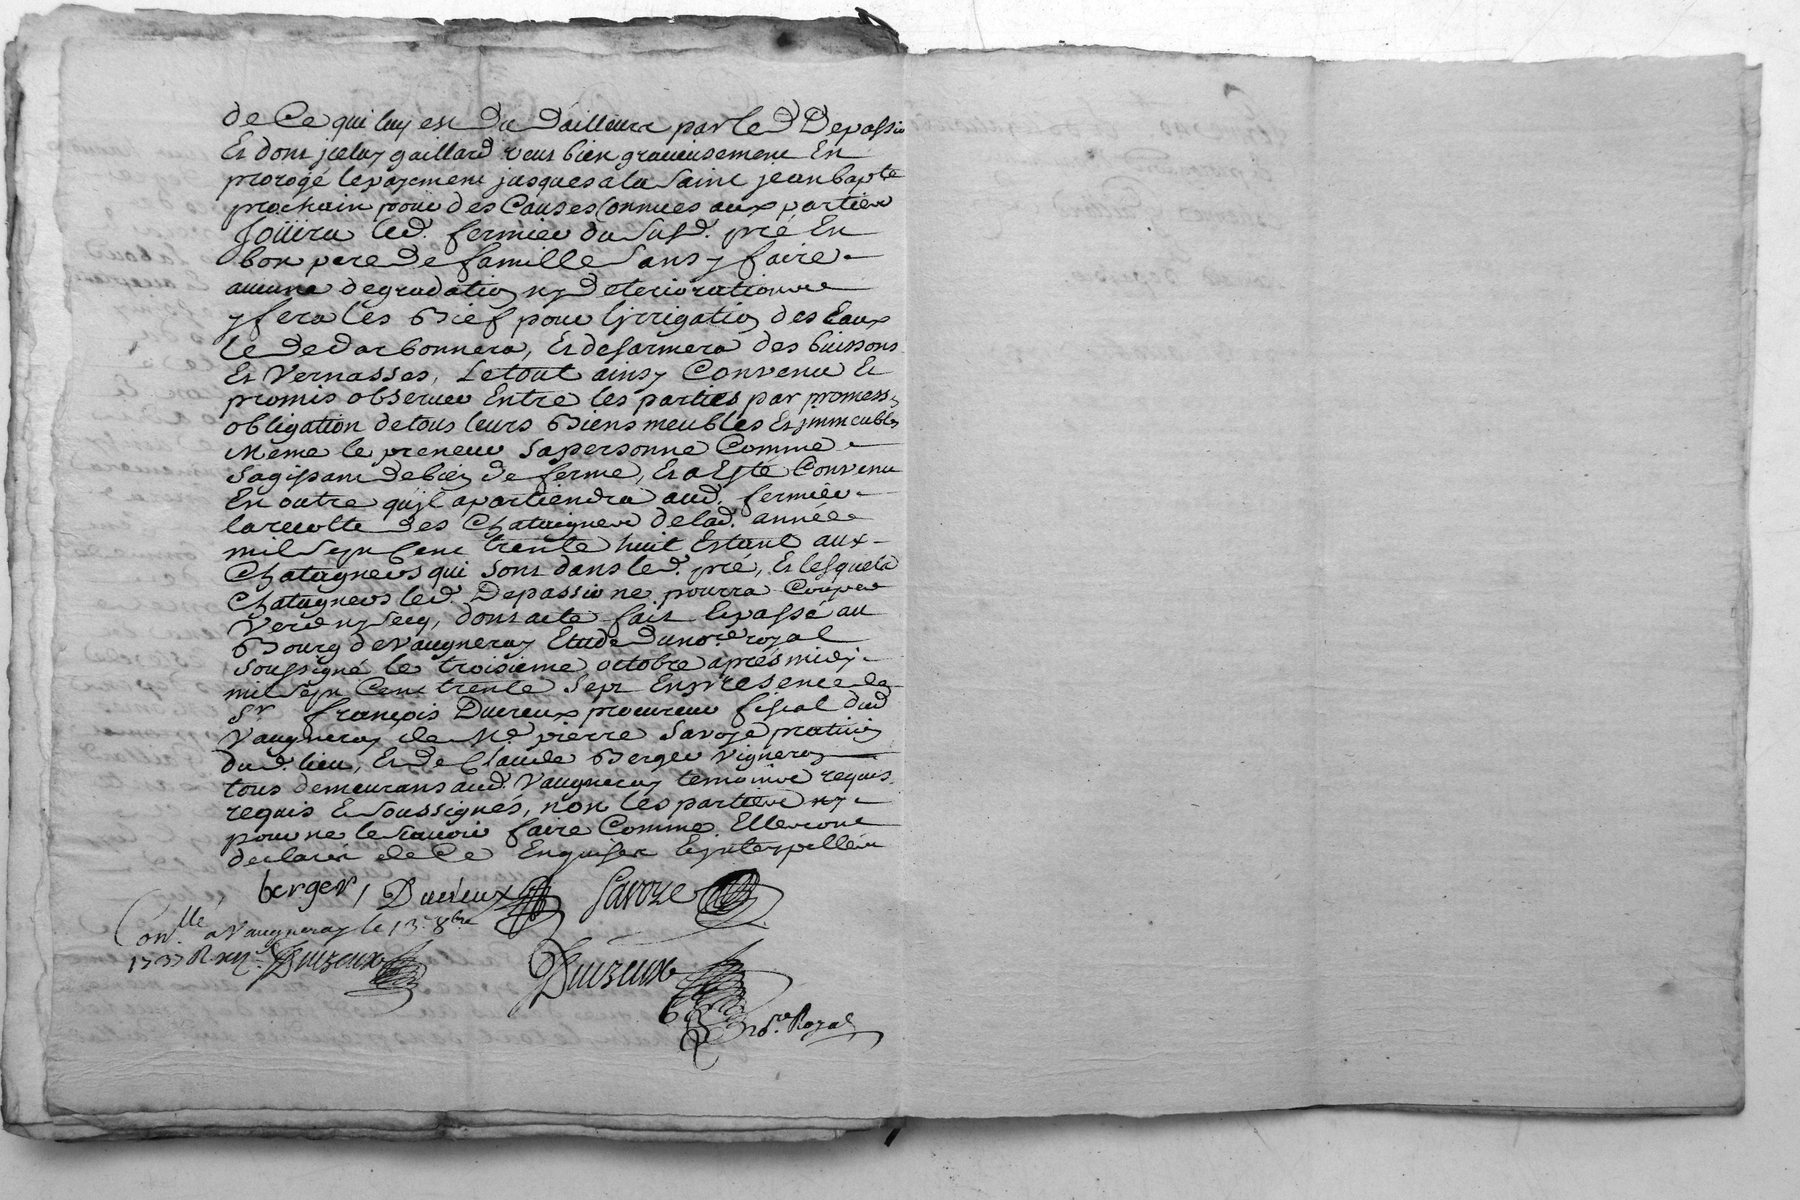 de Ce qui luy est du d'ailleurs par led Depassio
Et dont jceluy gaillard veut bien gratieusement En
prorogé le payement jusques a la Saint jean bapte
prochain pour des Causes Connues aux parties
Joüira led. fermier du Susd. pré En
bon pere de famille Sans y faire
aucune degradation ny deteriorations
y fera les Bief pour lirrigation des Eaux
le dedarbonnera, Et desarmera des buissons
Et Vernasses, Le tout ainsy Convenu Et
promis observer Entre les parties par promess
obligation de tous leurs Biens meubles Et jmmeubles
Meme le preneur Sa personne Comme
Sagissant de bien de ferme, Et a Esté Convenu
En outre qujl apartiendra aud. fermier
la recolte des Chataignes de lad. année
mil Sept Cent trente huit Estant aux
Chatagners qui Sont dans led. pré, Et lesquels
Chatagners led. Depassione pourra Couper
Verd ny Secq, dont acte fait Et passé au
Bourg de Vaugneray Etude du nore royal
Soussigné le troisieme octobre aprés midy
mil Sept Cent trente Sept En presence de
Sr françois Ducreux procureur fiscal dud
Vaugneray de Me pierre Savoye praticien
dud. lieu, Et de Claude Berger Vigneron
tous demeurans aud. Vaugneray temoins requis
requis & Soussignés, non les parties
pour ne le Scavoir faire Comme Elles ont
declaré de Ce Enquises Et jnterpellées
berger Ducreux Savoye
Conllé a Vaugneray le 13 8bre
1737 Ducreux
Ducreux
nore Royal